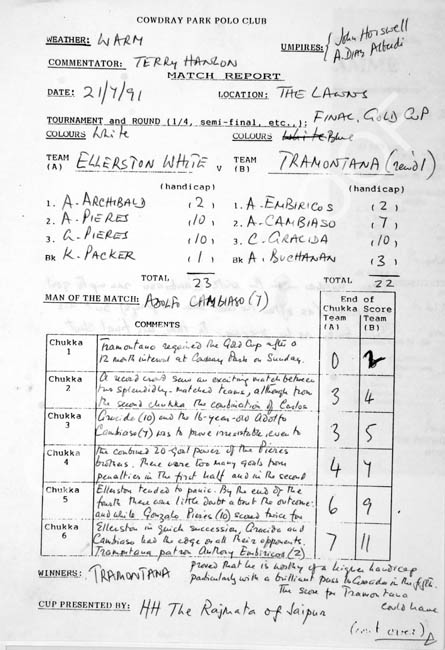 COWDRAY PARK POLO CLUB
WEATHER: WARM
UMPIRES: { John Horswell
A. Dias Alberdi
COMMENTATOR: TERRY HANLON
MATCH REPORT
DATE: 21/7/91 LOCATION: THE LAWNS
TOURNAMENT and ROUND (1/4, semi-final, etc..): FINAL, GOLD CUP
COLOURS White COLOURS White Blue
TEAM (A) ELLERSTON WHITE v TEAM (B) TRAMONTANA (rec'd 1)
(handicap) (handicap)
1. A. ARCHIBALD (2) 1. A. EMBIRICOS (2)
2. A. PIERES (10) 2. A. CAMBIASO (7)
3. G. PIERES (10) 3. C. GRACIDA (10)
Bk K. PACKER (1) Bk A. BUCHANAN (3)
TOTAL 23 TOTAL 22
MAN OF THE MATCH: ADOLFO CAMBIASO (7)
COMMENTS
End of Chukka Score
Team (A) Team (B)
Chukka 1 Tramontana regained the Gold Cup after a
12 month interval at Cowdray Park on Sunday. 0 2
Chukka 2 A record crowd saw an exciting match between
two splendidly-matched teams, although from
the second chukka the combination of Carlos 3 4
Chukka 3 Gracida (10) and the 16-year-old Adolfo
Cambiaso (7) was to prove irresistable, even to 3 5
Chukka 4 the combined 20-goal power of the Pieres
brothers. There were too many goals from
penalties in the first half and in the second 4 7
Chukka 5 Ellerston tended to panic. By the end of the
fourth there was little doubt about the outcome
and while Gonzalo Pieres (10) scored twice for 6 9
Chukka 6 Ellerston in quick succession, Gracida and
Cambiaso had the edge on all their opponents.
Tramontana patron Anthony Embiricos (2) 7 11
WINNERS: TRAMONTANA proved that he is worthy of a higher handicap
particularly with a brilliant pass to Gracida in the fifth.
The score for Tramontana
could have
CUP PRESENTED BY: HH The Rajmata of Jaipur
(cont over)